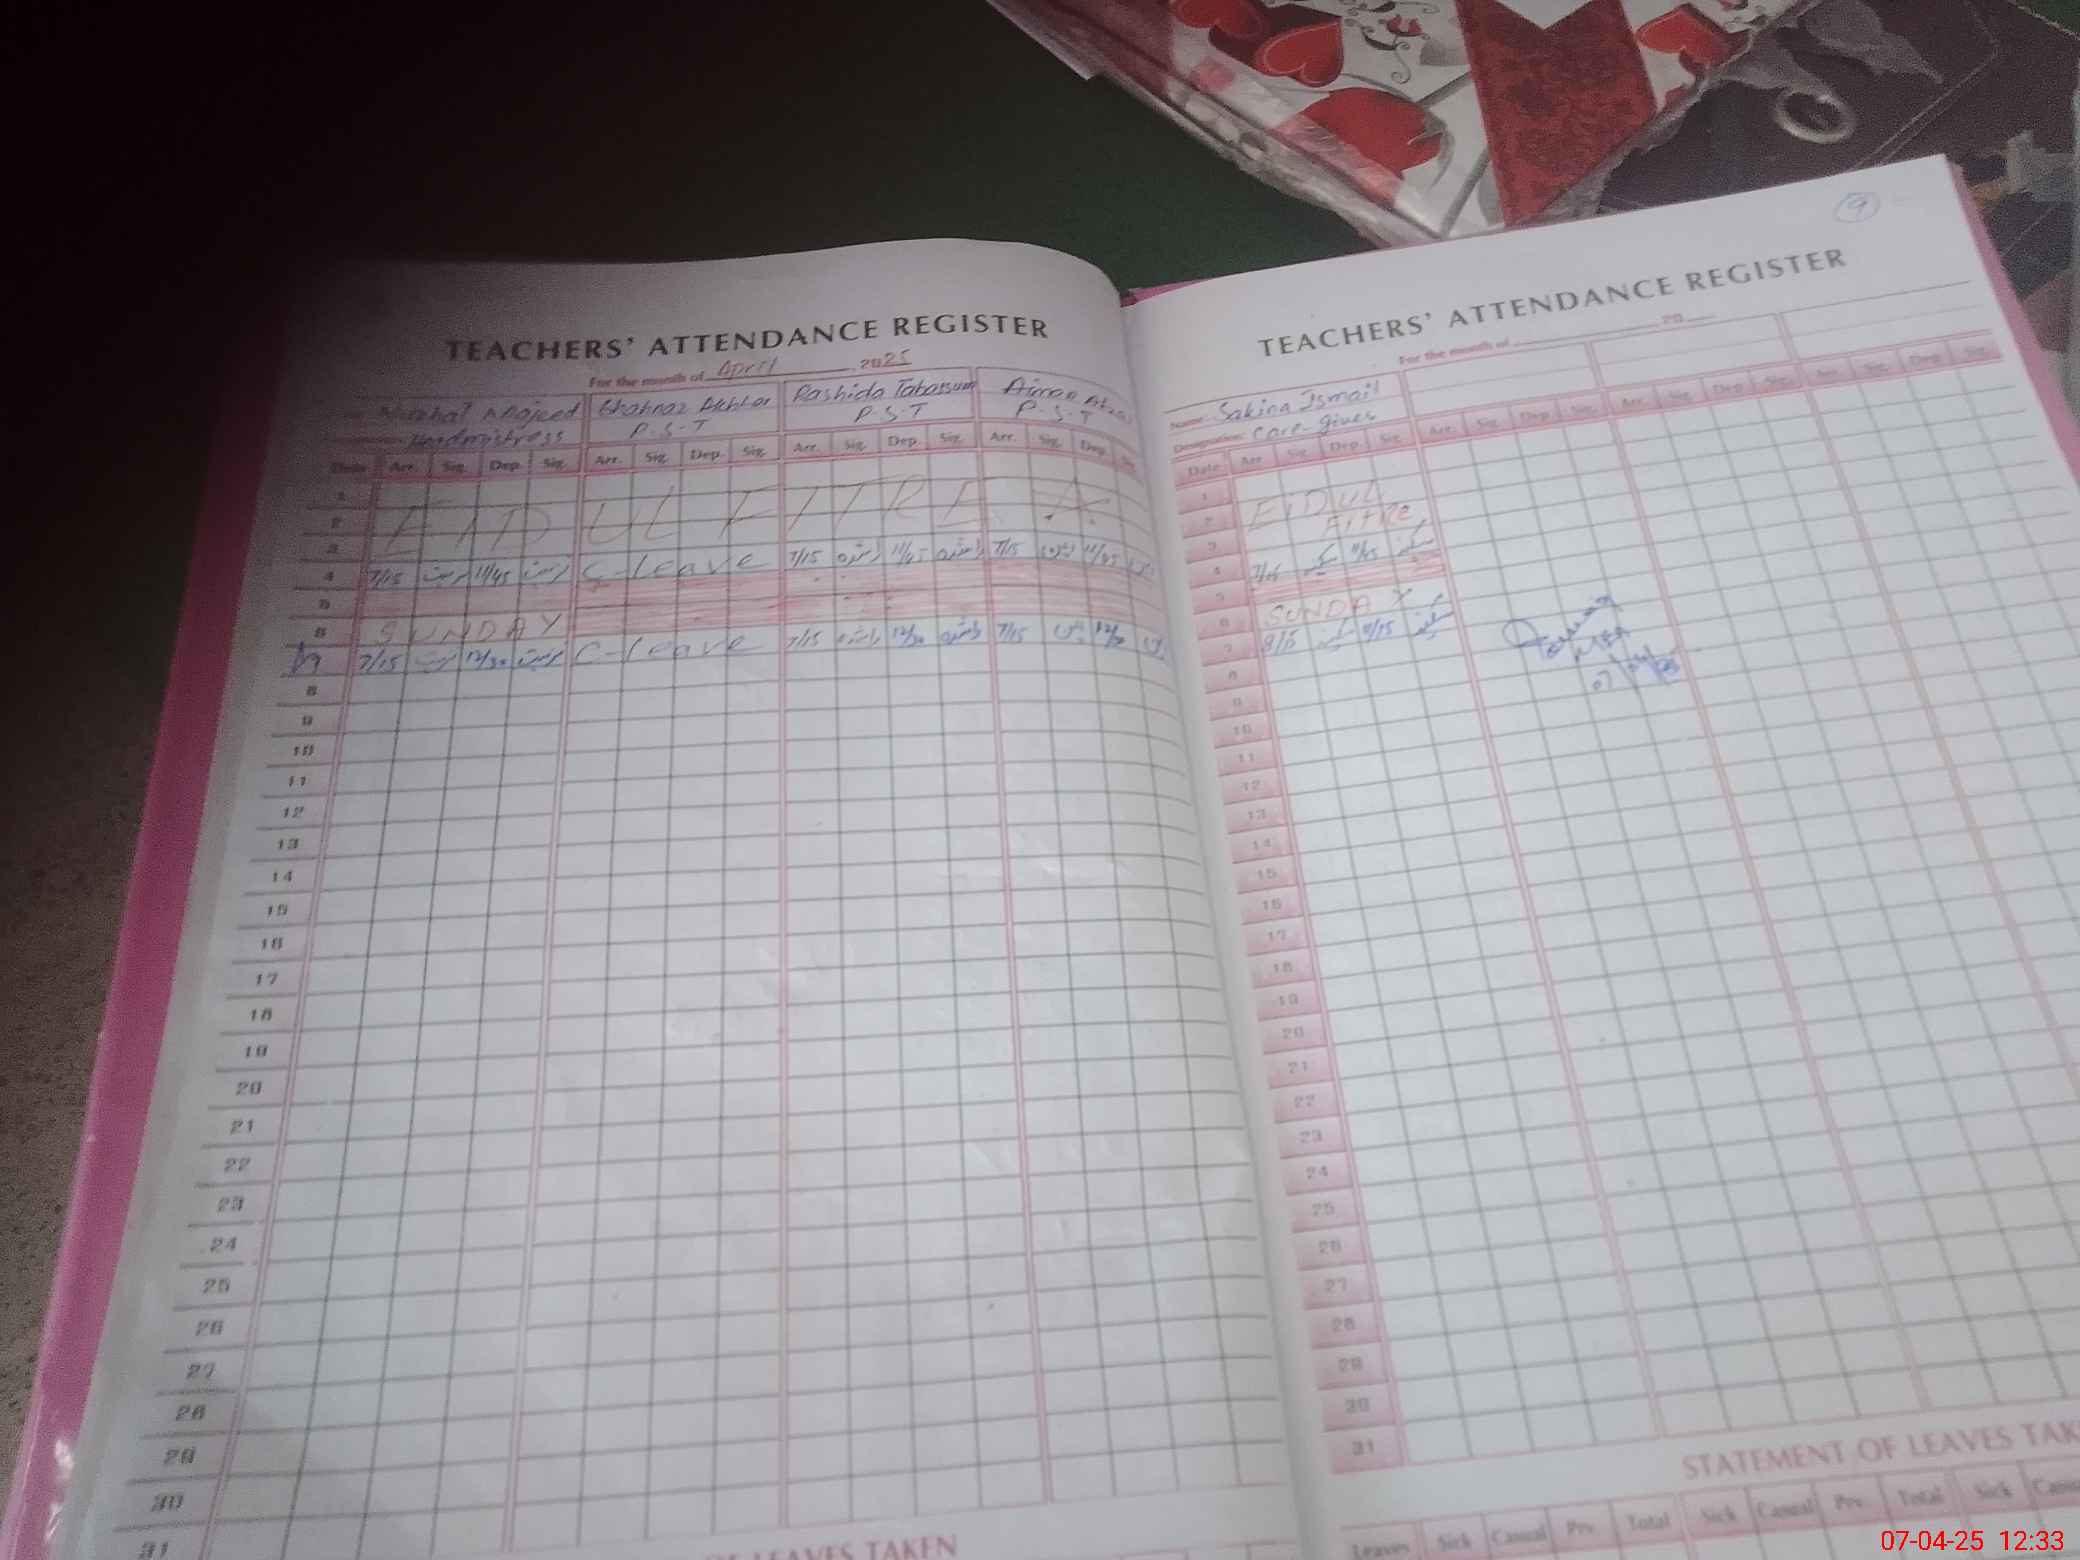 9
TEACHERS' ATTENDANCE REGISTER
For the month of April 2025
Majeed Akhtar Rashida Tabassum Aiman
Headmistress P.S.T P.S.T P.S.T
Date Arr. Sig. Dep. Sig. Arr. Sig. Dep. Sig. Arr. Sig. Dep. Sig. Arr. Sig. Dep. Sig.
1
2 EID UL FITRE
3
4 7/15 11/45 C-leave 7/15 11/45 7/15 11/45
5
6 SUNDAY
7 7/15 12/30 C-leave 7/15 12/30 7/15 12/30
8
9
10
11
12
13
14
15
16
17
18
19
20
21
22
23
24
25
26
27
28
29
30
31
OF LEAVES TAKEN
TEACHERS' ATTENDANCE REGISTER
For the month of 20
Name: Sakina Ismail
Designation: Care-giver
Date Arr. Sig. Dep. Sig. Arr. Sig. Dep. Sig. Arr. Sig. Dep. Sig. Arr. Sig. Dep. Sig.
1 EiDUL
2 Fitre
3
4 11/45
5
6 SUNDAY
7 8/15
MEA
07/04/25
8
9
10
11
12
13
14
15
16
17
18
19
20
21
22
23
24
25
26
27
28
29
30
31
STATEMENT OF LEAVES TAK
Leaves Sick Casual Prv. Total Sick Casual Prv. Total Sick Casu
07-04-25 12:33